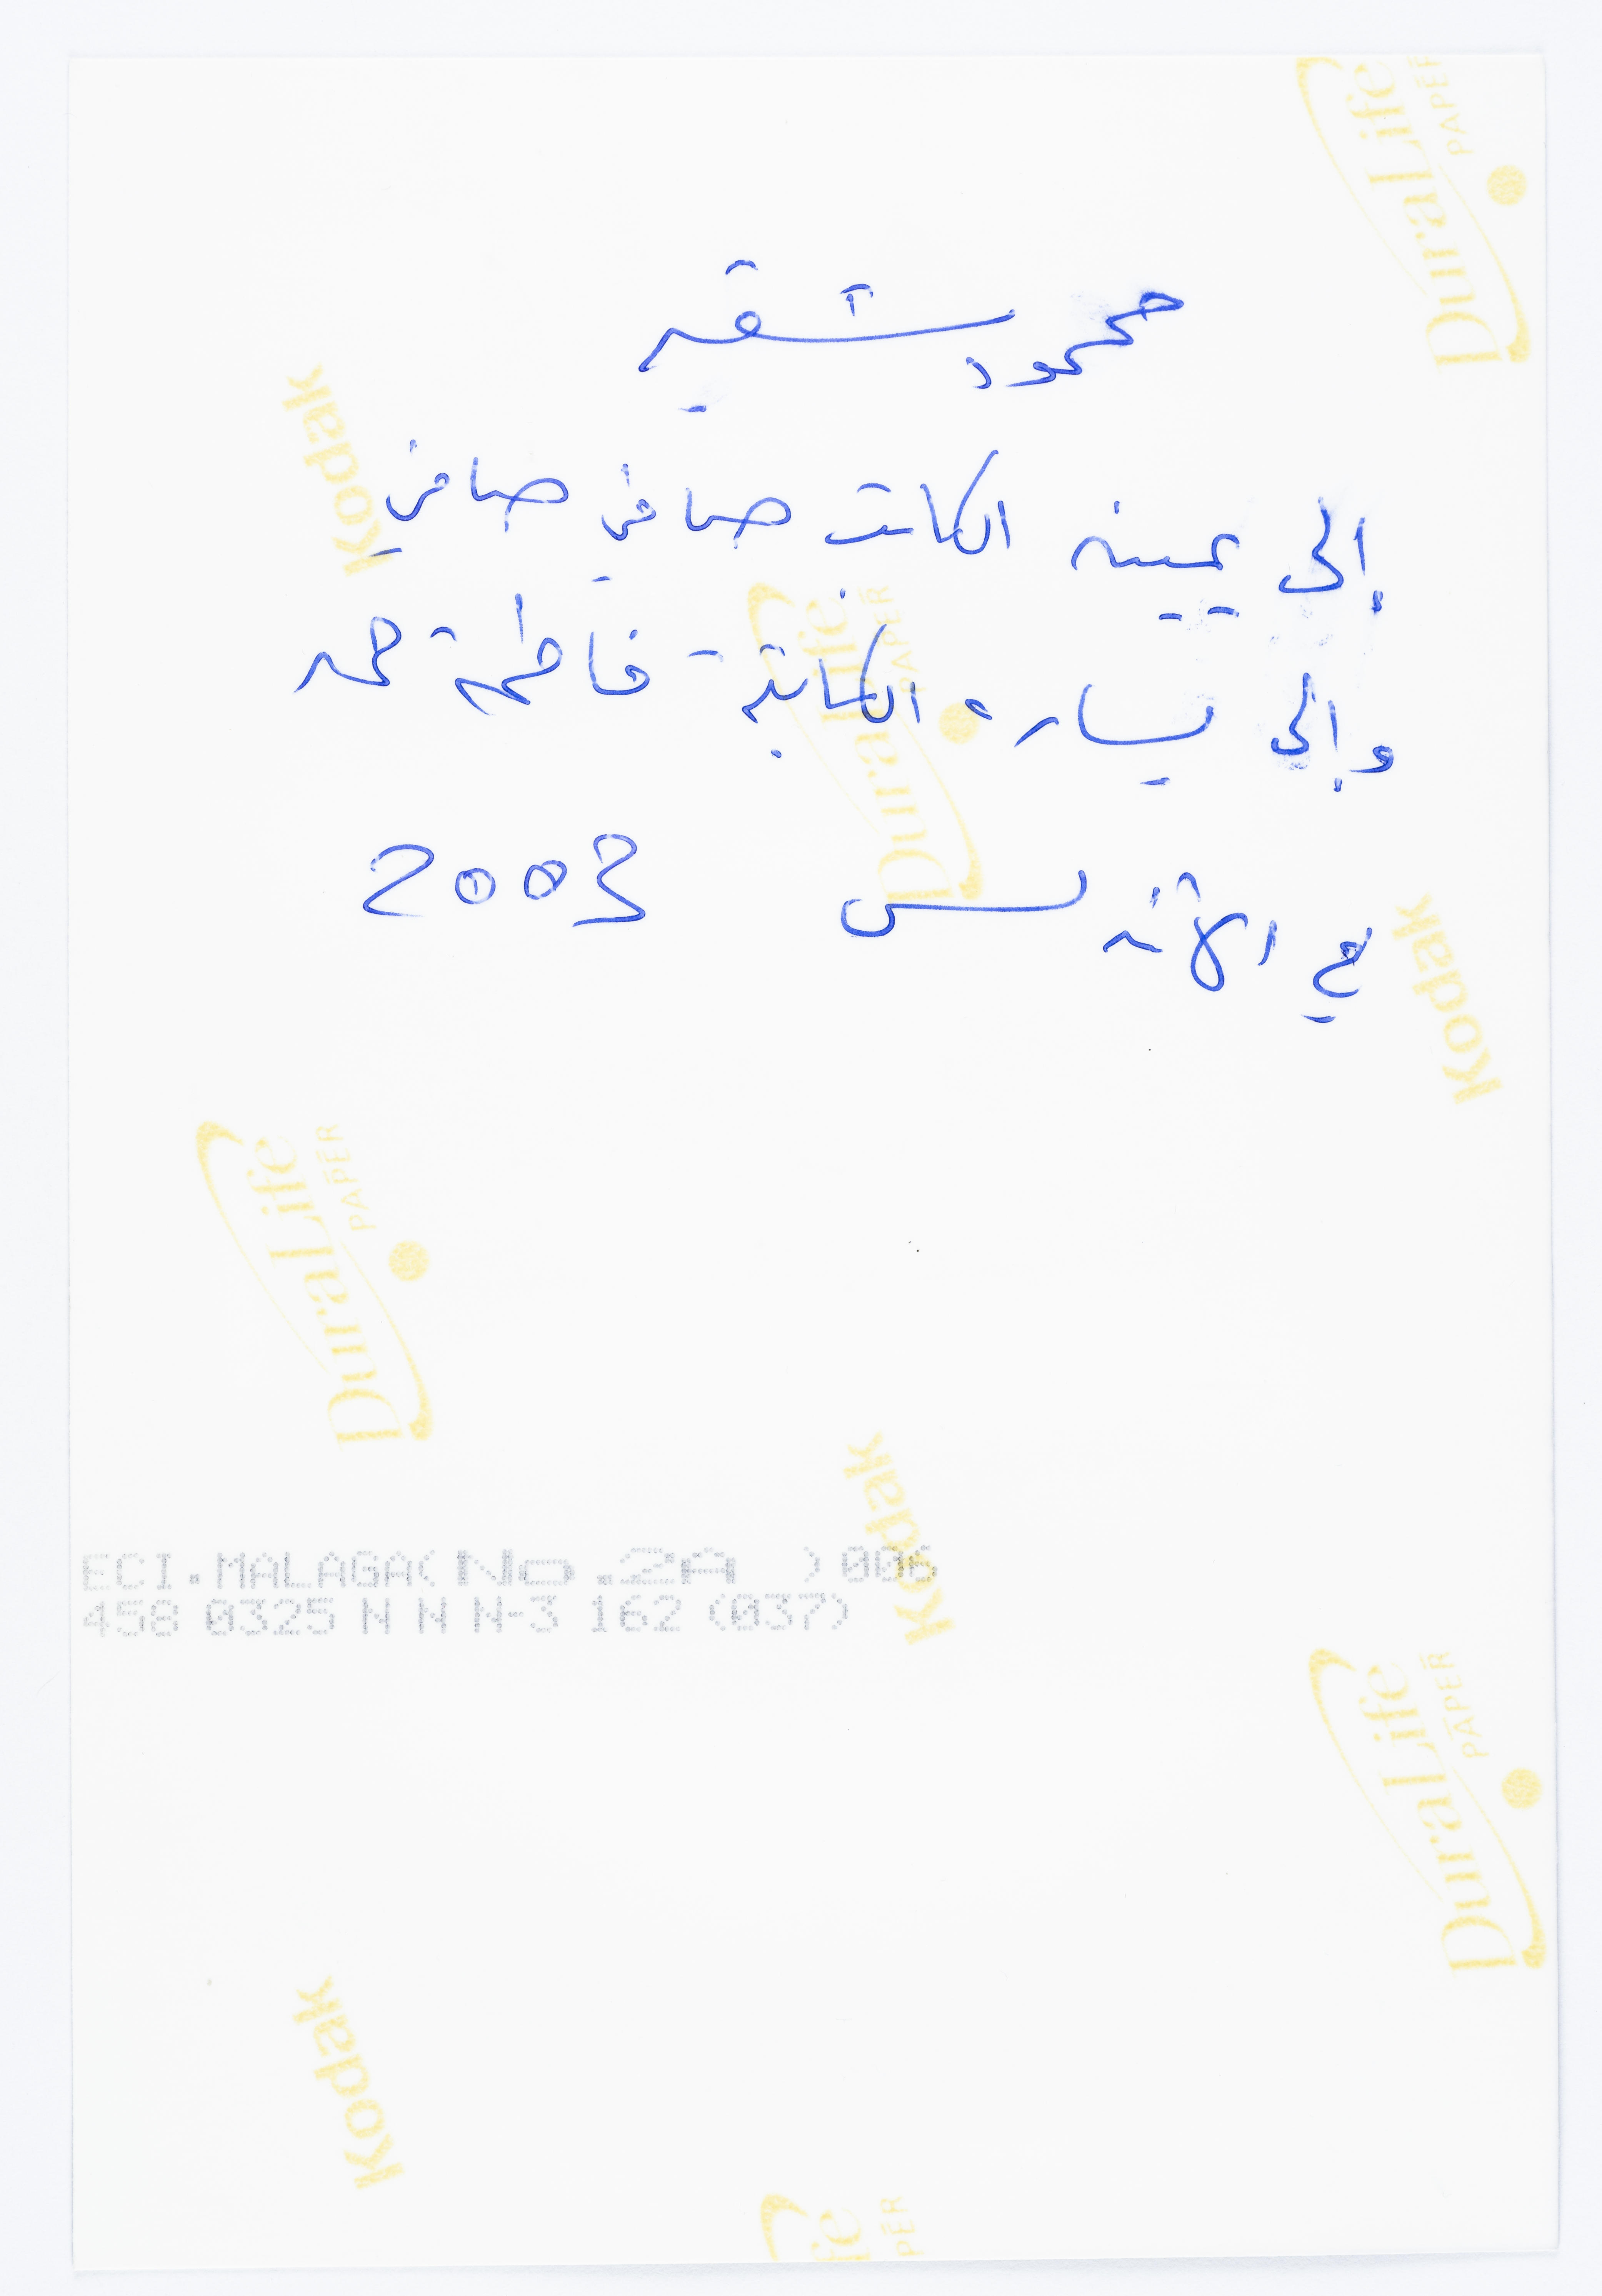 محمود شقير
إلى يمينه الكاتب صافي صافي
وإلى يساره الكاتبة فاطمة حمد
في الأندلس 2003
Kodak
DuraLife PAPER
ECI.MALAGA(No.2A ) 006
458 0325 N N N-3 162 (037)